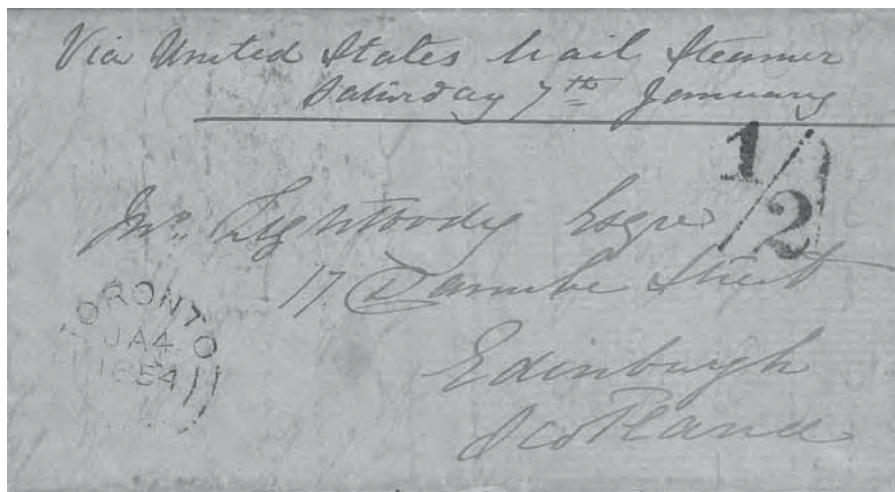 Via United States Mail Steamer
Saturday 7th January
1/2
Jno. Lightbody Esqre
17 Danube Street
Edinburgh
Scotland
TORONTO
JA 4
1854